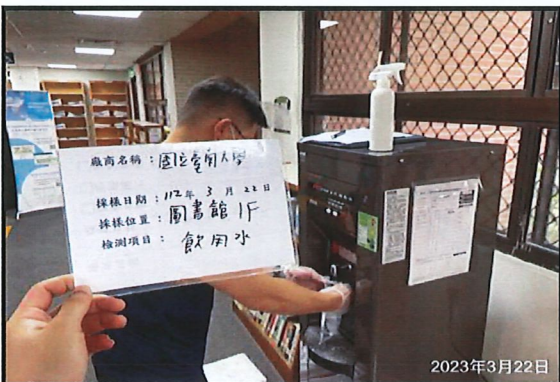 廠商名稱：國立臺南大學
採樣日期：112年3月22日
採樣位置：圖書館1F
檢測項目：飲用水
2023年3月22日